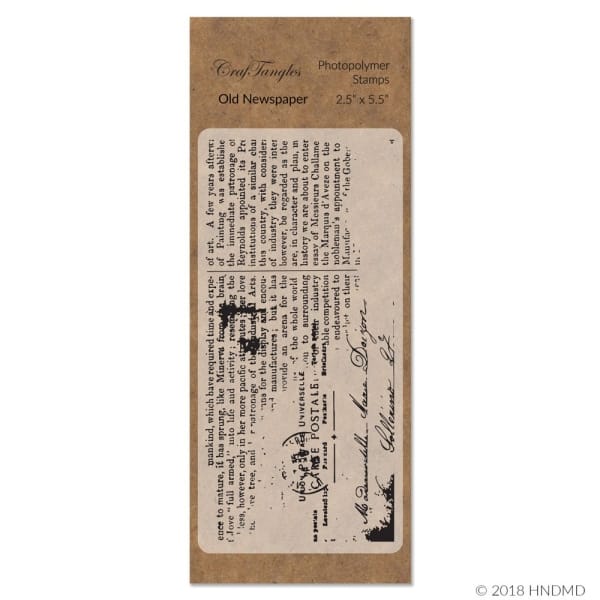 CrafTangles
Old Newspaper
Photopolymer
Stamps
2.5" x 5.5"
mankind, which have required time and expe-
ence to mature, it has sprung, like Minerva from the brain
f Jove "full armed," into life and activity; resembling the
less, however, only in her more pacific attributes; her love
tree, and patronage of the Industrial Arts.
ns for the display and encou-
manufactures; but it has
provide an arena for the
of the whole world
to surrounding
industry
able competition
endeavoured to
on their
of art. A few years afterw
of Painting was establishe
the immediate patronage of
Reynolds appointed its Pre
institutions of a similar cha
this country, with consideri
of industry they were inter
however, be regarded as the
are, in character and plan, m
history we are about to enter
essay of Messieurs Challame
the Marquis d'Aveze on the
nobleman's appointment to
the Gobe
UNIVERSELLE
CARTE POSTALE
Mademoiselle Marie
© 2018 HNDMD